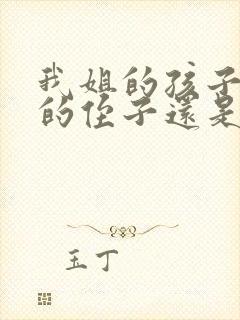 我姐的孩子
的侄子還是
玉丁